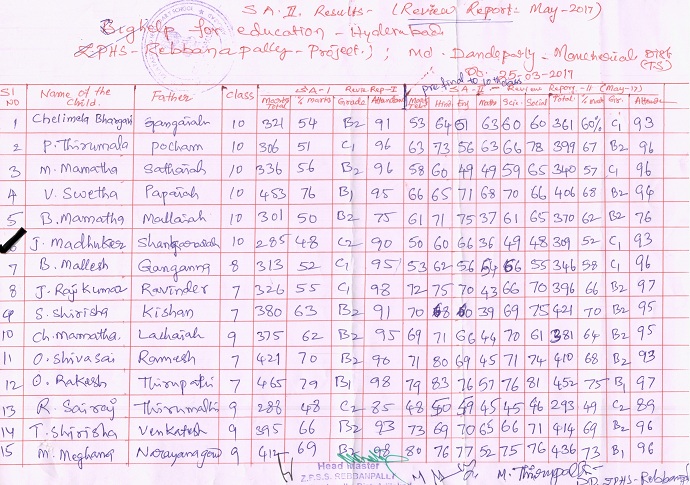 S.A.II. Results - (Review Report: May-2017)
Bighelp for education - Hyderabad.
ZPHS-Rebbanapally-Project.); Md. Dandepally-Mancherial Dist
(TS)
Dt. 25-03-2017
Sl NO Name of the Child. Father Class SA-I Rev.Rep-I pre final to 10th class SA-II - Review Report-II (May-17)
Marks Total % marks Grade Attendance Tel Hindi Eng Maths Scie. Social Total % mark Gr. Attend
1 Chelimela Bhargavi Gangaiah 10 321 54 B2 91 53 64 51 63 60 60 361 60% C1 93
2 P. Thirumala Pocham 10 306 51 C1 96 63 73 56 63 66 78 399 67 B2 96
3 M. Mamatha Sathaiah 10 336 56 B2 96 58 60 49 49 59 65 340 57 C1 96
4 V. Swetha Papaiah 10 453 76 B1 95 66 65 71 68 70 66 406 68 B2 94
5 B. Mamatha Mallaiah 10 301 50 B2 75 61 71 75 37 61 65 370 62 B2 76
6 J. Madhuker 10 285 48 C2 90 50 60 66 36 49 48 309 52 C1 93
7 B. Mallesh Ganganna 8 313 52 C1 95 53 62 56 54 66 55 346 58 C1 96
8 J. Raj Kumar Ravinder 7 326 55 C1 98 72 75 70 43 66 70 396 66 B2 97
9 S. Shirisha Kishan 7 380 63 B2 91 70 68 60 39 69 75 421 70 B2 95
10 Ch. Mamatha. Lachaiah 9 375 62 B2 95 69 71 66 44 70 61 381 64 B2 95
11 O. Shivasai Ramesh 7 421 70 B2 90 71 80 69 45 71 74 410 68 B2 93
12 O. Rakesh Thirupathi 7 465 79 B1 98 79 83 76 57 76 81 452 75 B1 97
13 R. Sairaj Thirumalli 9 288 48 C2 85 48 60 49 45 45 46 293 49 C2 89
14 T. Shirisha Venkatesh 9 395 66 B2 93 73 69 70 65 66 71 414 69 B2 96
15 M. Meghana Narayanagoud 9 412 69 B2 98 80 76 77 52 75 76 436 73 B1 96
Head Master
Z.P.S.S. REBBANPALLY
M. Thirupathi
ZPHS-Rebbanapally